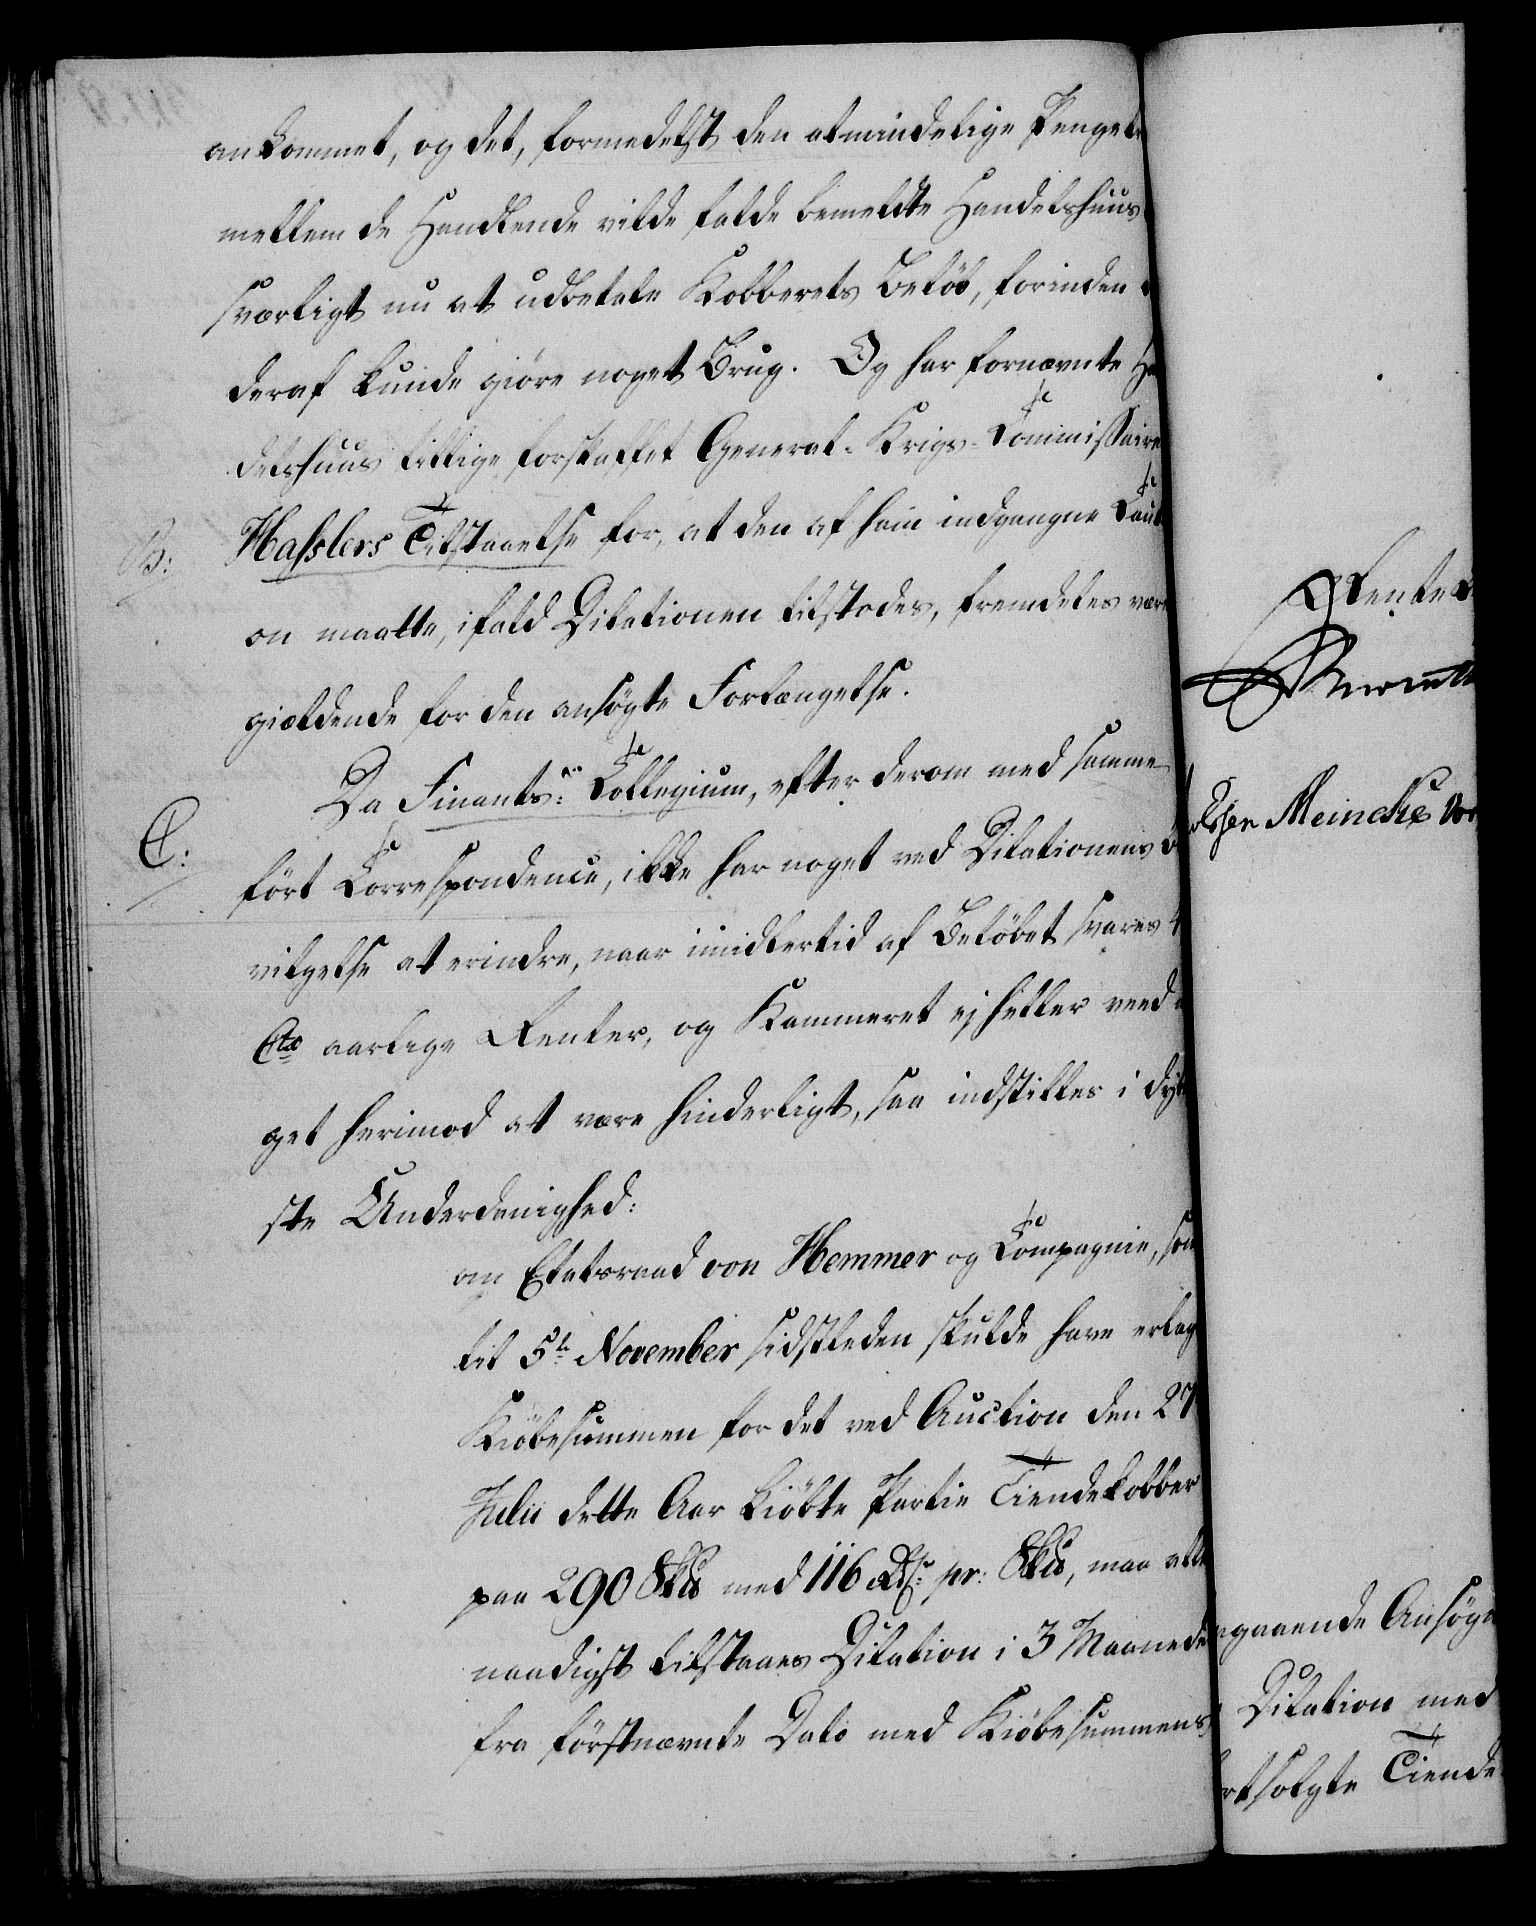 ankommet, og det, formedelst den almindelige Penge
mellem de Handlende vilde falde bemeldte Handelshuus
sværligt nu at udbetale Kobberets Beløb, forinden
deraf kunde giøre noget Brug. Og har fornævnte Ha
delshuus tillige forskaffet General-Krigs-Commissaire
B: Hasslers Tilstaaelse for, at den af ham indgangne Caut
on maatte, ifald Dilationen tilstodes, fremdeles være
gieldende for den ansøgte Forlængelse.
C: Da Finants-Collegium, efter derom med samme
ført Correspondence, ikke har noget ved Dilationens Be
vilgelse at erindre, naar imidlertid af Beløbet svares 4
Cto aarlige Renter, og Kammeret ej heller veed
get herimod at være hinderligt, saa indstilles i dyb
ste Underdanighed:
om Etatsraad von Hemmer og Compagnie, som
til 5te November sidstleden skulde have erlag
Kiøbesummen for det ved Auction den 27
Julii dette Aar kiøbte Partie Tiendekobber
paa 290 Sk℔ med 116 Rdr pr: Sk℔, maa aller
naadigst tilstaaes Dilation i 3 Maaneder
fra førstnævnte Dato med Kiøbesummens
Rente
Meincke
gaaende Ansøgn
Dilation med
solgte Tiende